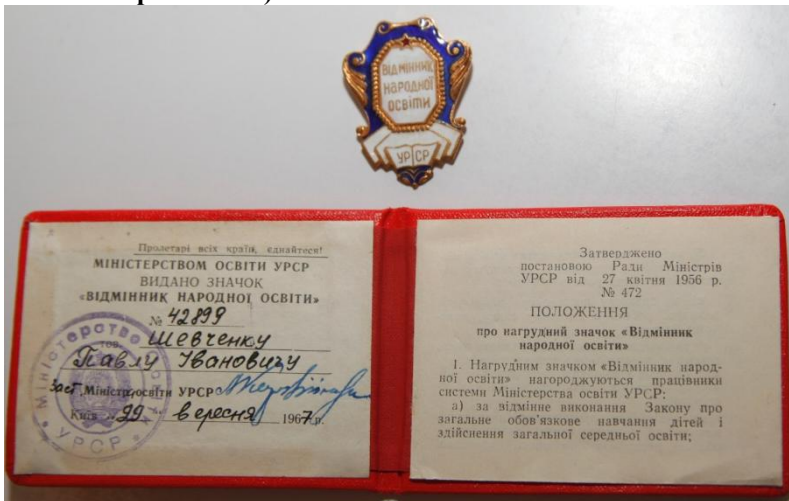 ВІДМІННИК
НАРОДНОЇ
ОСВІТИ
УРСР
Пролетарі всіх країн, єднайтеся!
МІНІСТЕРСТВОМ ОСВІТИ УРСР
ВИДАНО ЗНАЧОК
«ВІДМІННИК НАРОДНОЇ ОСВІТИ»
№ 42899
тов. Шевченку
Павлу Івановичу
Заст. Міністр освіти УРСР
Київ „29" вересня 1967 р.
МІНІСТЕРСТВО
УРСР
Затверджено
постановою Ради Міністрів
УРСР від 27 квітня 1956 р.
№ 472
ПОЛОЖЕННЯ
про нагрудний значок «Відмінник
народної освіти»
1. Нагрудним значком «Відмінник народ-
ної освіти» нагороджуються працівники
системи Міністерства освіти УРСР:
а) за відмінне виконання Закону про
загальне обов'язкове навчання дітей і
здійснення загальної середньої освіти;